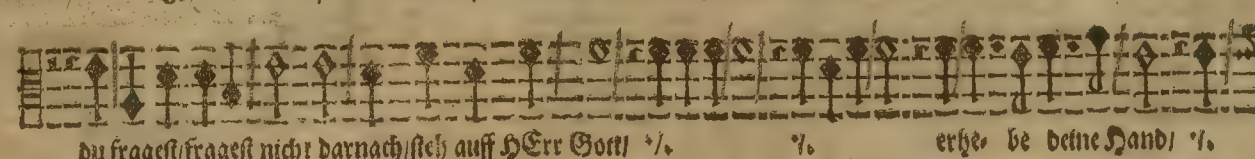 du fragest/fragest nicht darnach/steh auff HErr Gott/ ·/. ·/. erhe- be deine Hand/ ·/.